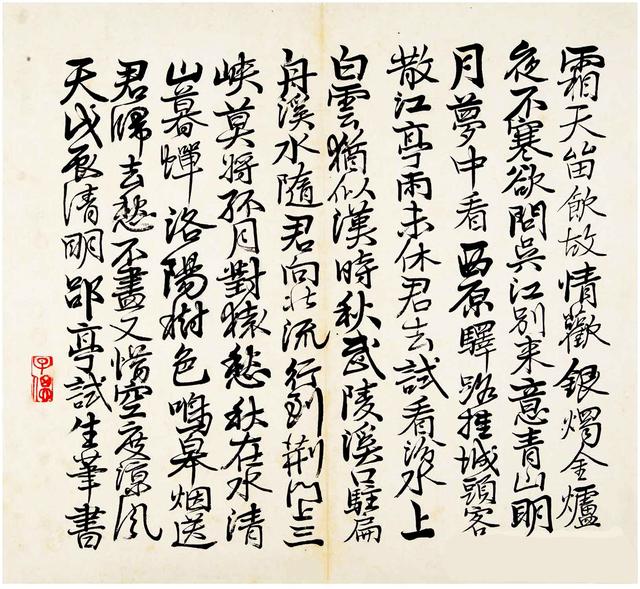 霜天留飲故情歡銀燭金爐
夜不寒欲問吳江別來意青山明
月夢中看西原驛路挂城頭客
散江亭雨未休君去試看汾水上
白雲猶似漢時秋武陵溪口駐扁
舟溪水隨君向北流行到荆門上三
峽莫將孤月對猿愁秋在水清
山暮蟬洛陽樹色鳴皋烟送
君歸去愁不盡又惜空度涼風
天戊辰清明郘亭試生筆書
子偲